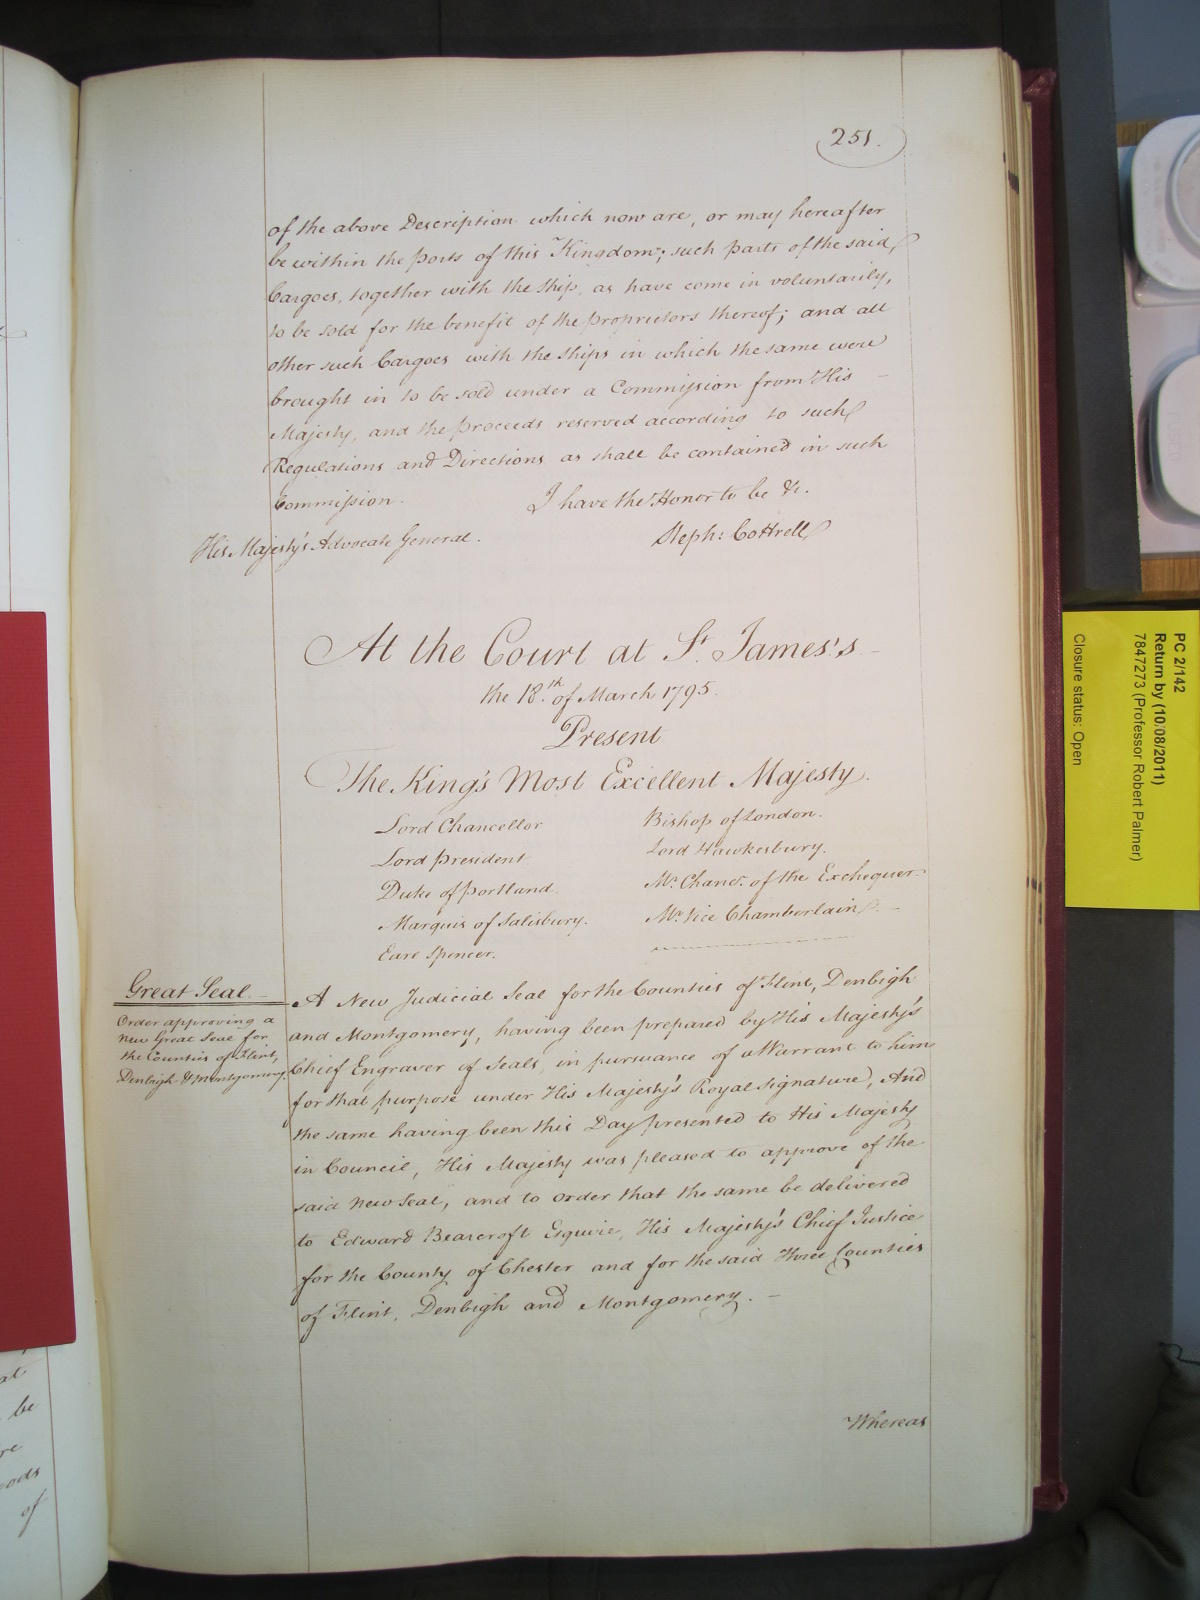 251.
of the above Description which now are, or may hereafter
be within the ports of this Kingdom; such parts of the said
Cargoes, together with the Ship, as have come in voluntarily,
to be sold for the benefit of the proprietors thereof; and all
other such Cargoes with the Ships in which the same were
brought in to be sold under a Commission from His
Majesty, and the proceeds reserved according to such
Regulations and Directions as shall be contained in such
Commission.
I have the Honor to be &c.
His Majesty's Advocate General.
Steph: Cottrell
At the Court at St. James's
the 18th. of March 1795.
Present
The King's Most Excellent Majesty.
Lord Chancellor
Lord President
Duke of Portland
Marquis of Salisbury.
Earl Spencer.
Bishop of London.
Lord Hawkesbury.
Mr. Chancr. of the Exchequer
Mr. Vice Chamberlain
Great Seal
Order approving a
New Great Seal for
the Counties of Flint,
Denbigh & Montgomery.
A New Judicial Seal for the Counties of Flint, Denbigh
and Montgomery, having been prepared by His Majesty's
Chief Engraver of Seals, in pursuance of a Warrant to him
for that purpose under His Majesty's Royal Signature, And
the same having been this Day presented to His Majesty
in Council, His Majesty was pleased to approve of the
said New Seal, and to order that the same be delivered
to Edward Bearcroft Esquire, His Majesty's Chief Justice
for the County of Chester and for the said Three Counties
of Flint, Denbigh and Montgomery.
Whereas
be
of
PC 2/142
Return by (10/08/2011)
7847273 (Professor Robert Palmer)
Closure status: Open